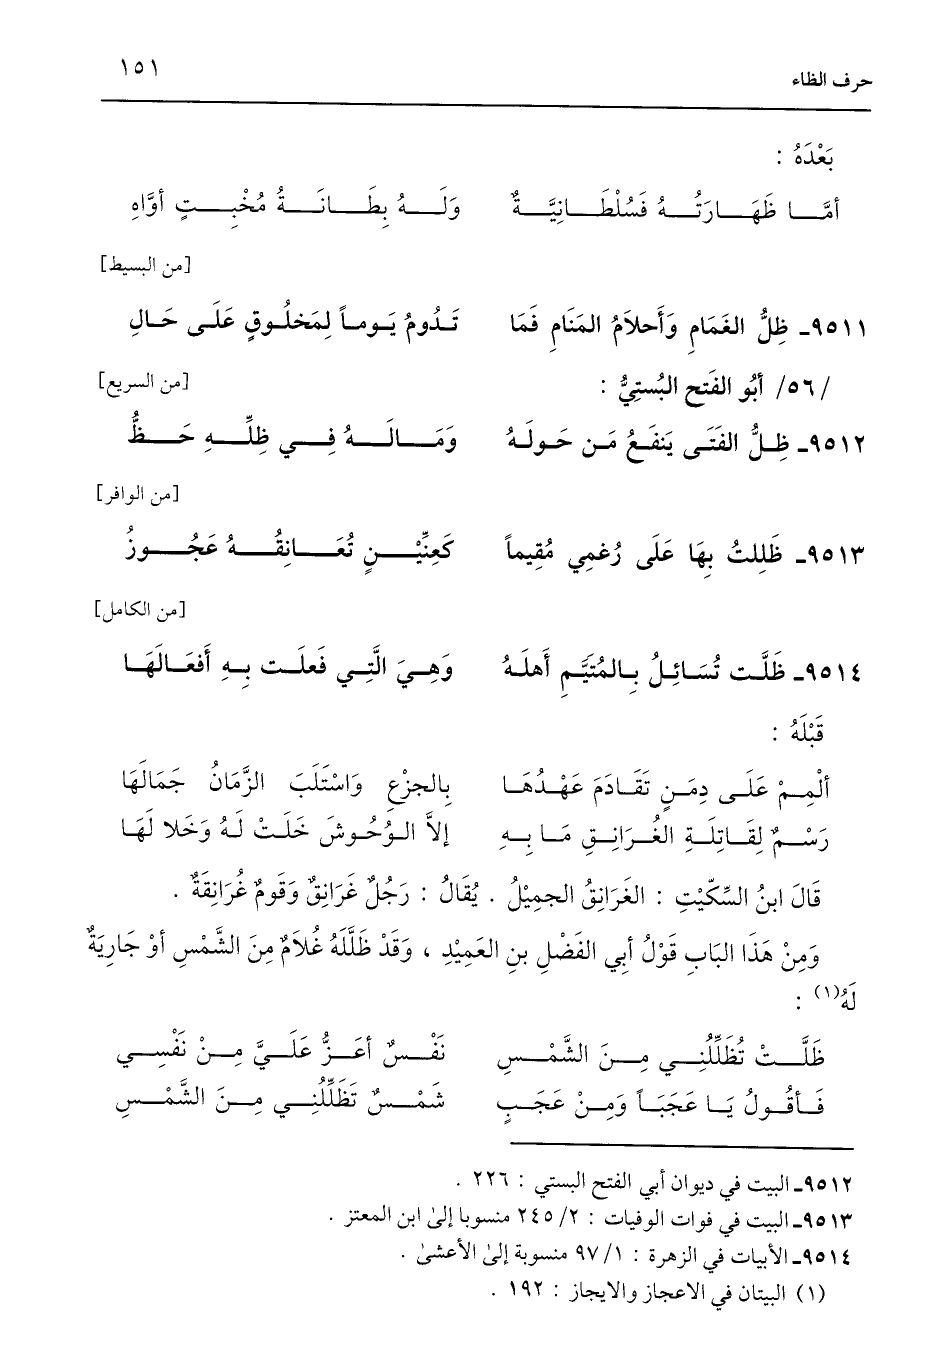 حرف الظاء ١٥١
بَعْدَهُ :
أمَّا ظَهَارَتُهُ فَسُلْطَانِيَّةٌ وَلَهُ بِطَانَةُ مُخْبِتٍ أوَّاهِ
[من البسيط]
٩٥١١ـ ظِلُّ الغَمَامِ وَأَحلاَمُ المَنَامِ فَمَا تَدُومُ يَوماً لِمَخلُوقٍ عَلَى حَالِ
/٥٦/ أبُو الفَتحِ البُستِيُّ : [من السريع]
٩٥١٢ـ ظِلُّ الفَتَى يَنفَعُ مَن حَولَهُ وَمَالَهُ فِي ظِلِّهِ حَظُّ
[من الوافر]
٩٥١٣ـ ظَلِلتُ بِهَا عَلَى رُغمِي مُقِيماً كَعِنِّيْنٍ تُعَانِقُهُ عَجُوزُ
[من الكامل]
٩٥١٤ـ ظَلَّت تُسَائِلُ بِالمُتَيَّمِ أَهلَهُ وَهِيَ الَّتِي فَعلَت بِهِ أَفعَالَهَا
قَبْلَهُ :
ألْمِمْ عَلَى دِمَنٍ تَقَادَمَ عَهْدُهَا بِالجزْعِ وَاسْتَلَبَ الزَّمَانُ جَمَالَهَا
رَسْمٌ لِقَاتِلَةِ الغُرَانِقِ مَا بِهِ إلاَّ الوُحُوشَ خَلَتْ لَهُ وَخَلا لَهَا
قَالَ ابنُ السِّكّيْتِ : الغَرَانِقُ الجمِيْلُ . يُقَالُ : رَجُلٌ غَرَانِقٌ وَقَومٌ غُرَانِقَةٌ .
وَمِنْ هَذَا البَابِ قَوْلُ أبِي الفَضْلِ بنِ العَمِيْدِ ، وَقَدْ ظَلَّلَهُ غُلاَمٌ مِنَ الشَّمْسِ أوْ جَارِيَةٌ
لَهُ(١) :
ظَلَّتْ تُظَلِّلُنِي مِنَ الشَّمْسِ نَفْسٌ أعَزُّ عَلَيَّ مِنْ نَفْسِي
فَأقُولُ يَا عَجَبَاً وَمِنْ عَجَبٍ شَمْسٌ تَظَلِّلُنِي مِنَ الشَّمْسِ
٩٥١٢ـ البيت في ديوان أبي الفتح البستي : ٢٢٦ .
٩٥١٣ـ البيت في فوات الوفيات : ٢/ ٢٤٥ منسوبا إلى ابن المعتز .
٩٥١٤ـ الأبيات في الزهرة : ١/ ٩٧ منسوبة إلى الأعشى .
(١) البيتان في الاعجاز والايجاز : ١٩٢ .